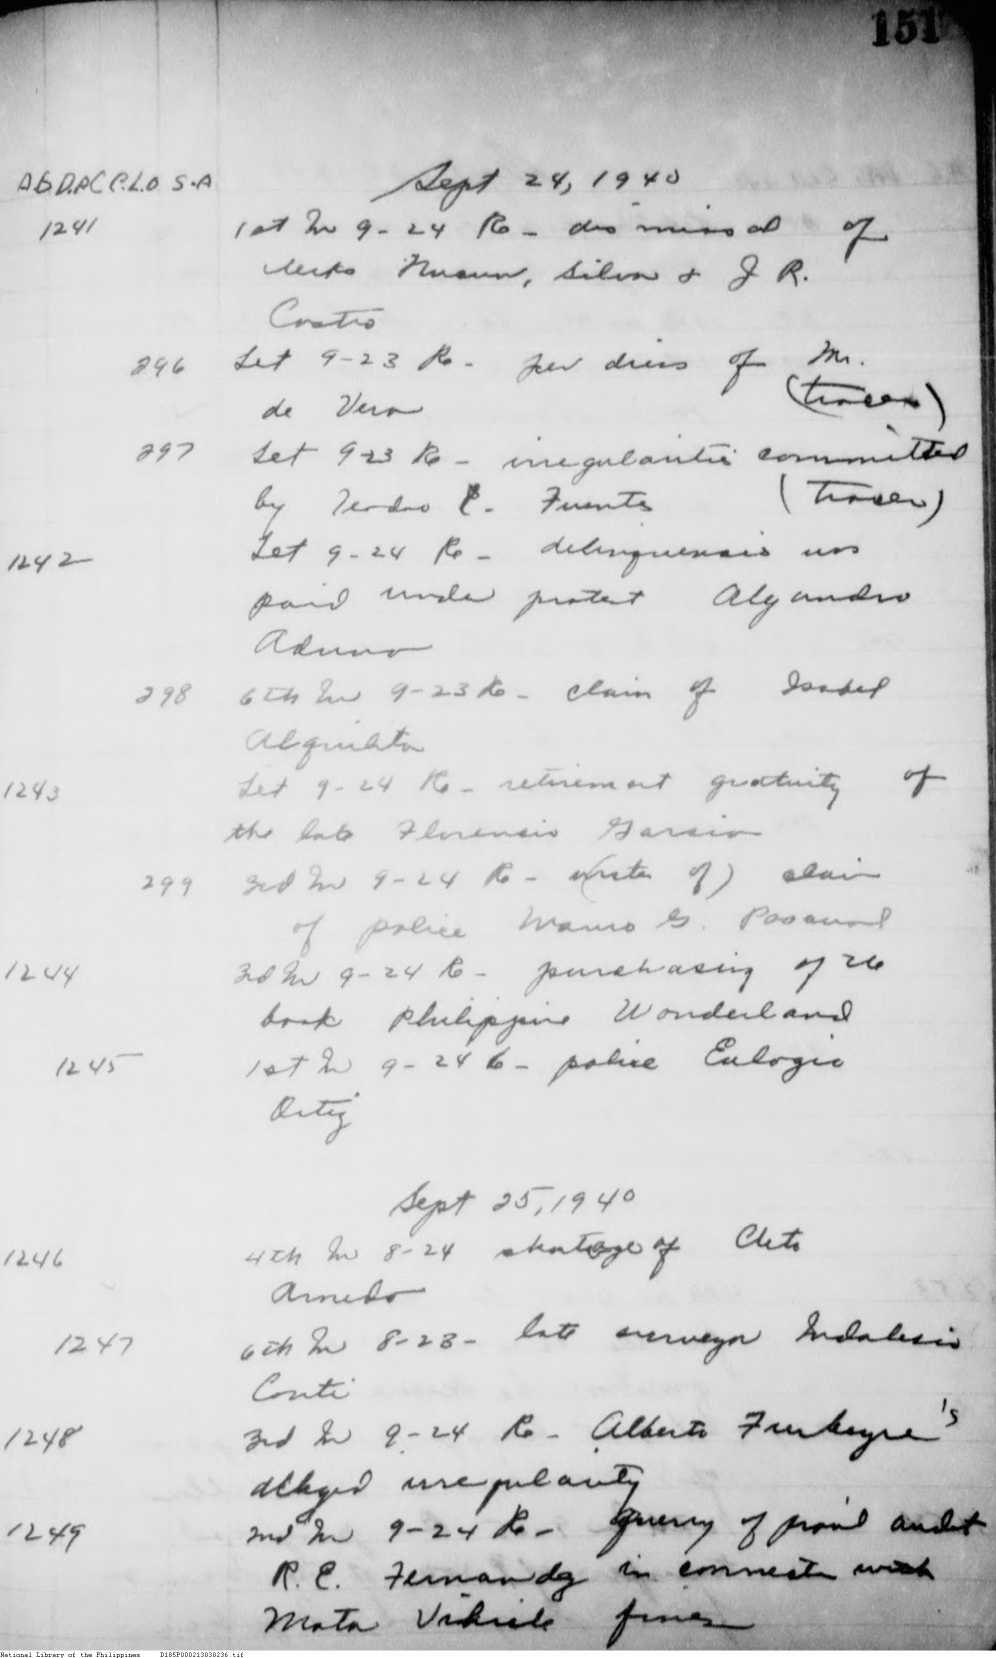 151
Sept 24, 1940
1241 1st In 9-24 Re- dismissal of
Silva & J R.
Castro
296 Let 9-23 Re- per diems of Mr.
de Vera (tracer)
297 Let 9-23 Re- irregularities committed
by Teodro E. Fuente (tracer)
1242 Let 9-24 Re-
paid under protest Alejandro
298 6th In 9-23 Re- claim of Isabel
1243 Let 9-24 Re- retirement gratuity of
the late Florencio Garcia
299 3rd In 9-24 Re- claim
of police G.
1244 3rd In 9-24 Re- purchasing of
book Philippine Wonderland
1245 1st In 9-24 Re- police Eulogio
Ortiz
Sept 25, 1940
1246 4th In 8-24 shortage of Cleto
Arnedo
1247 6th In 8-23- late surveyor Indalecio
Conti
1248 3rd In 9-24 Re- Alberto
alleged irregularity
1249 2nd In 9-24 Re- query of
R. E. Fernandez in connection with
Motor Vehicle fines
National Library of the Philippines D185P000213030236.tif